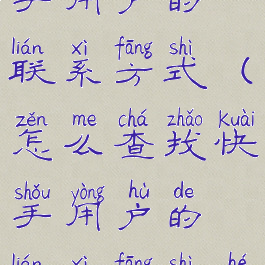 手用户的
lián xì fāng shì
联系方式（
zěn me chá zhǎo kuài
怎么查找快
shǒu yòng hù de
手用户的
lián xì fāng shì hé